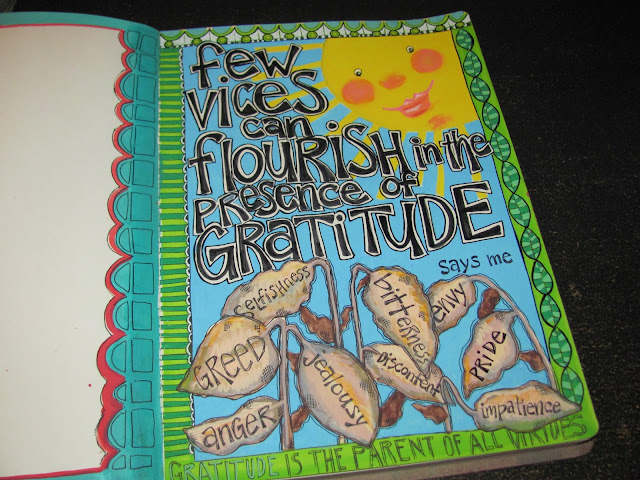 few
VICES
can
flOURISH in the
PRESENCE of
GRATITUDE
says me
Selfishness
bitterness
envy
GREED
Jealousy
Discontent
PRIDE
anger
impatience
GRATITUDE IS THE PARENT OF ALL VIRTUES